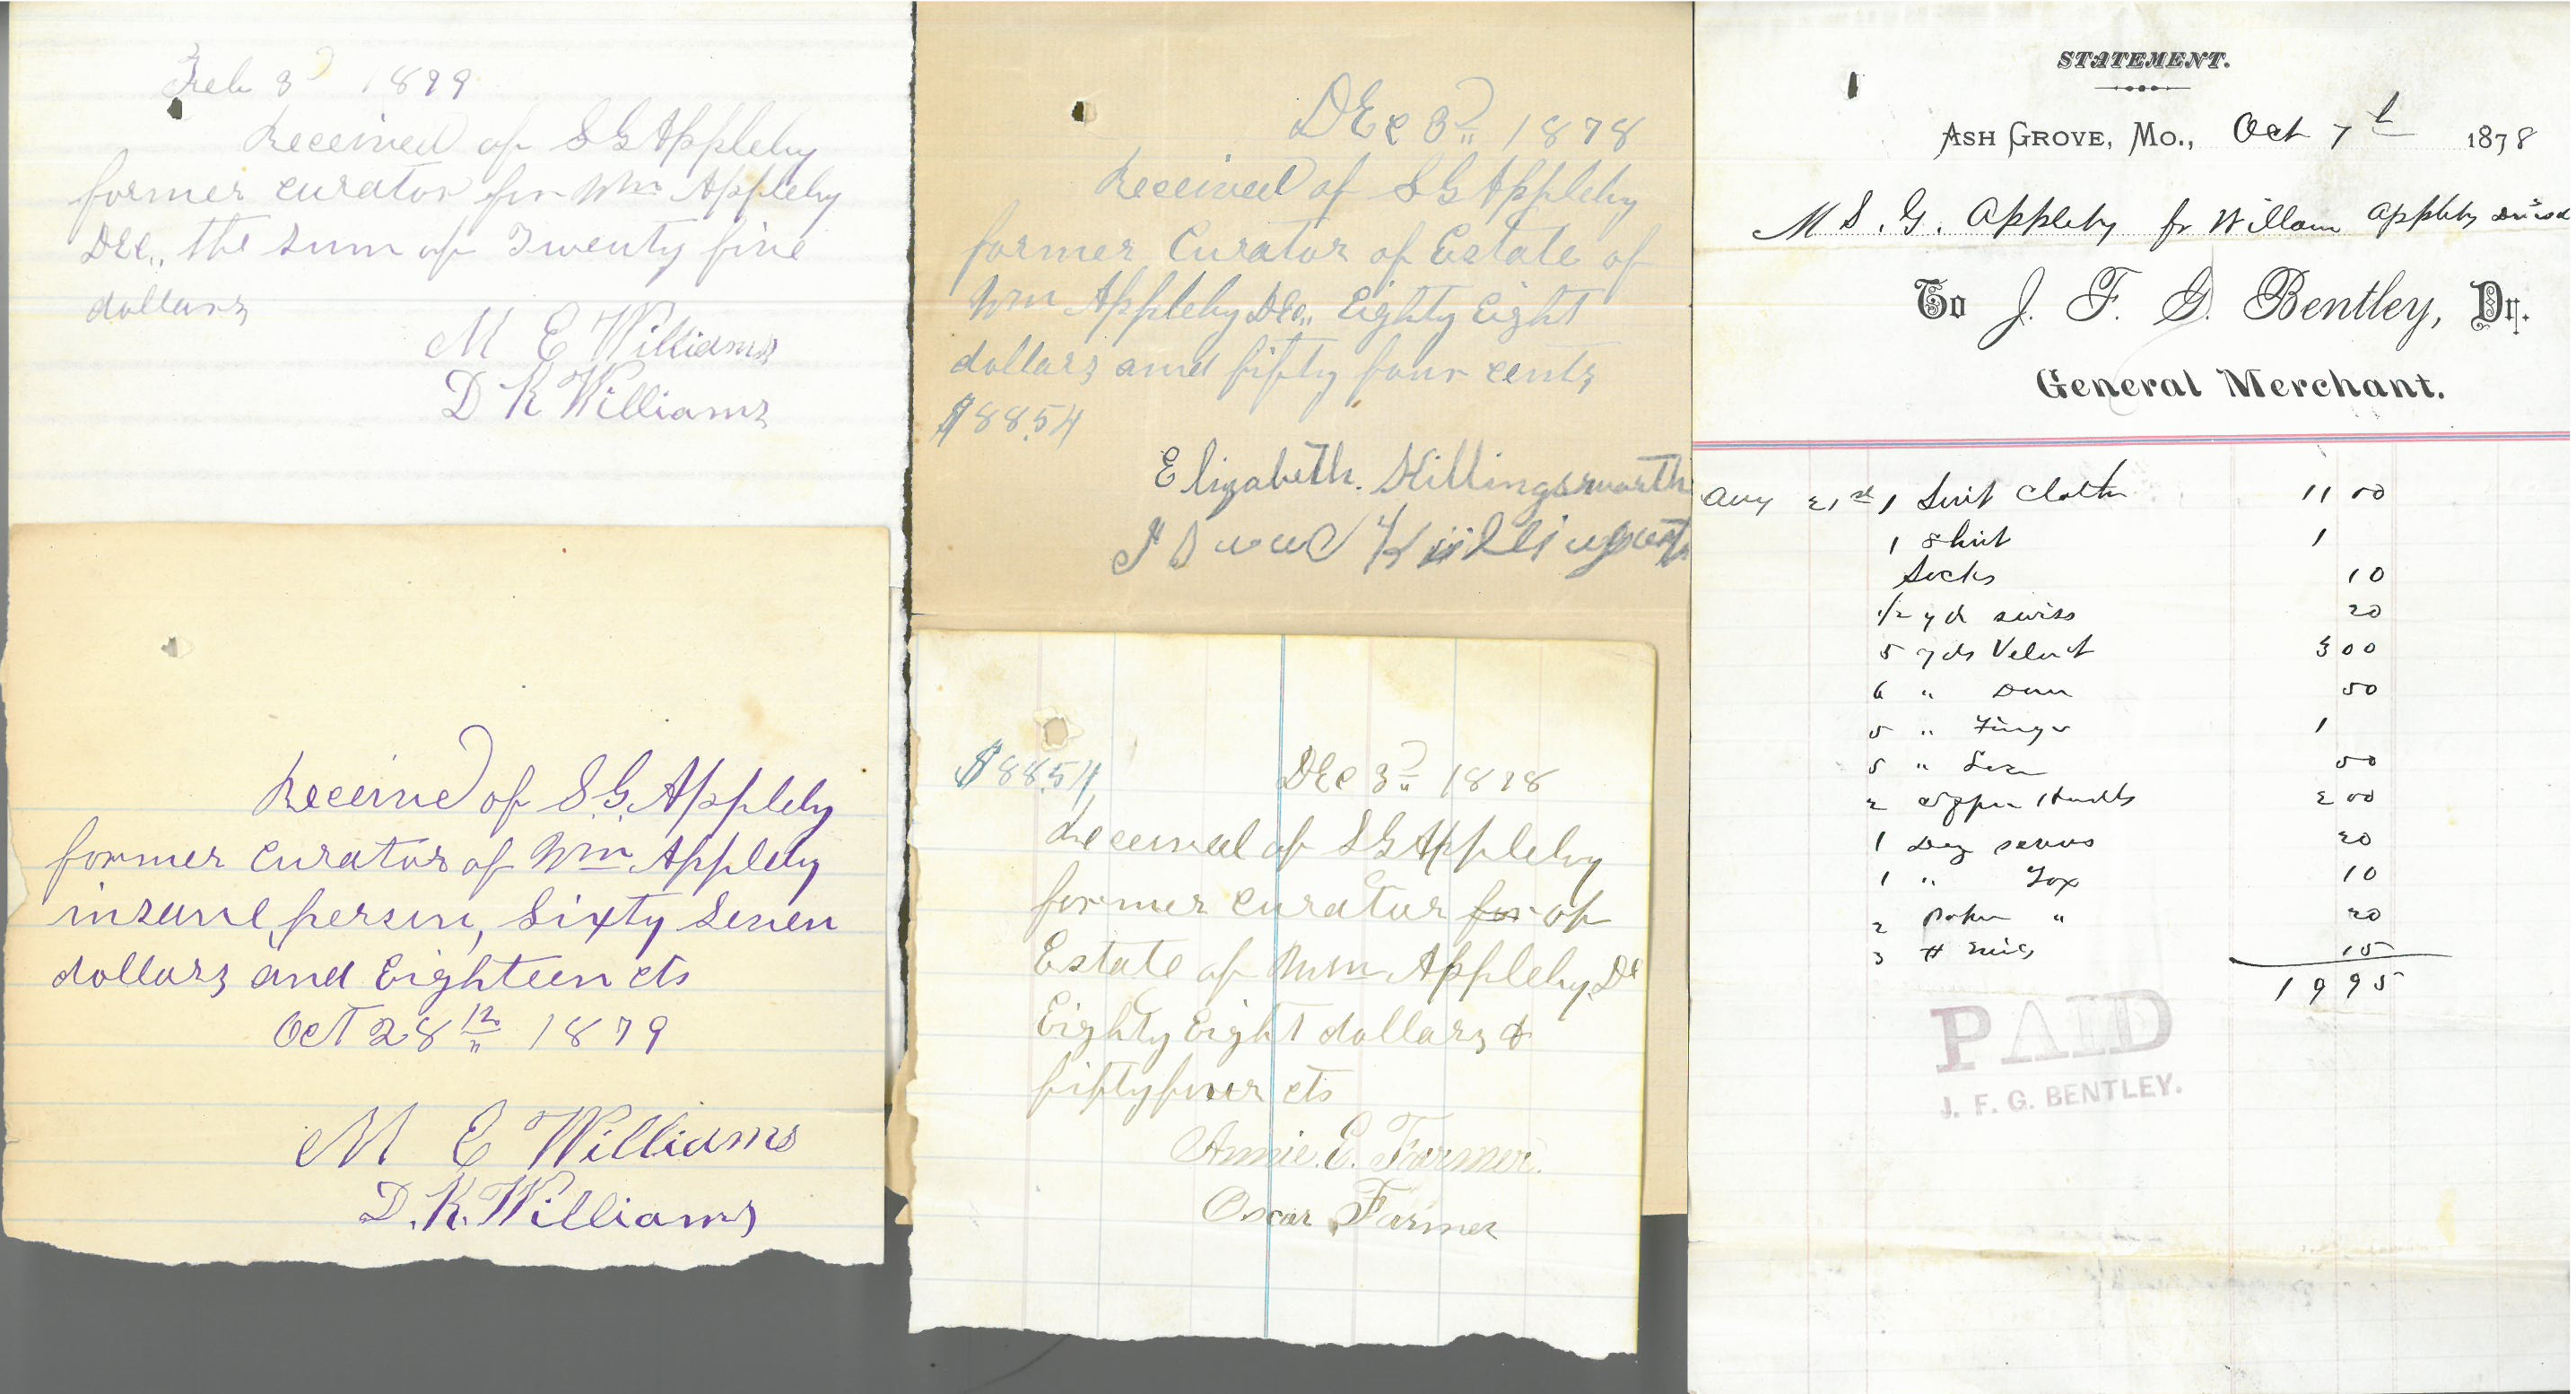 Feb 3 1879
Received of S G Appleby
former curator for Wm Appleby
DEC,, the sum of Twenty five
dollars
M E Williams
D K Williams
Received of S.G. Appleby
former curator of Wm Appleby
insane person, Sixty Seven
dollars and Eighteen cts
Oct 28th 1879
M E Williams
D. K. Williams
DEc 3rd 1878
Received of S G Appleby
former Curator of Estate of
Wm Appleby Dec,, Eighty Eight
dollars and fifty four cents
$88.54
Elizabeth. Killingsworth
Killingsworth
$88.54
DEc 3rd 1878
Received of S G Appleby
former curator for of
Estate of Wm Appleby, De
Eighty Eight dollars &
fifty four cts
Annie. E. Farmer.
Oscar Farmer
STATEMENT.
ASH GROVE, MO., Oct 7th 1878
M S. G. Appleby for Willam Appleby
To J. F. G. Bentley, Dr.
General Merchant.
Aug 21st 1 Suit Cloths 11 00
1 Shirt 1
Socks 10
1/2 yd swiss 20
5 yds Velvet 3 00
6 " 50
5 " Fringe 1
5 " 50
2 Handls 2 00
1 Doz screws 20
1 " 10
2 " 20
3 # nails 15
19 95
PAID
J. F. G. BENTLEY.